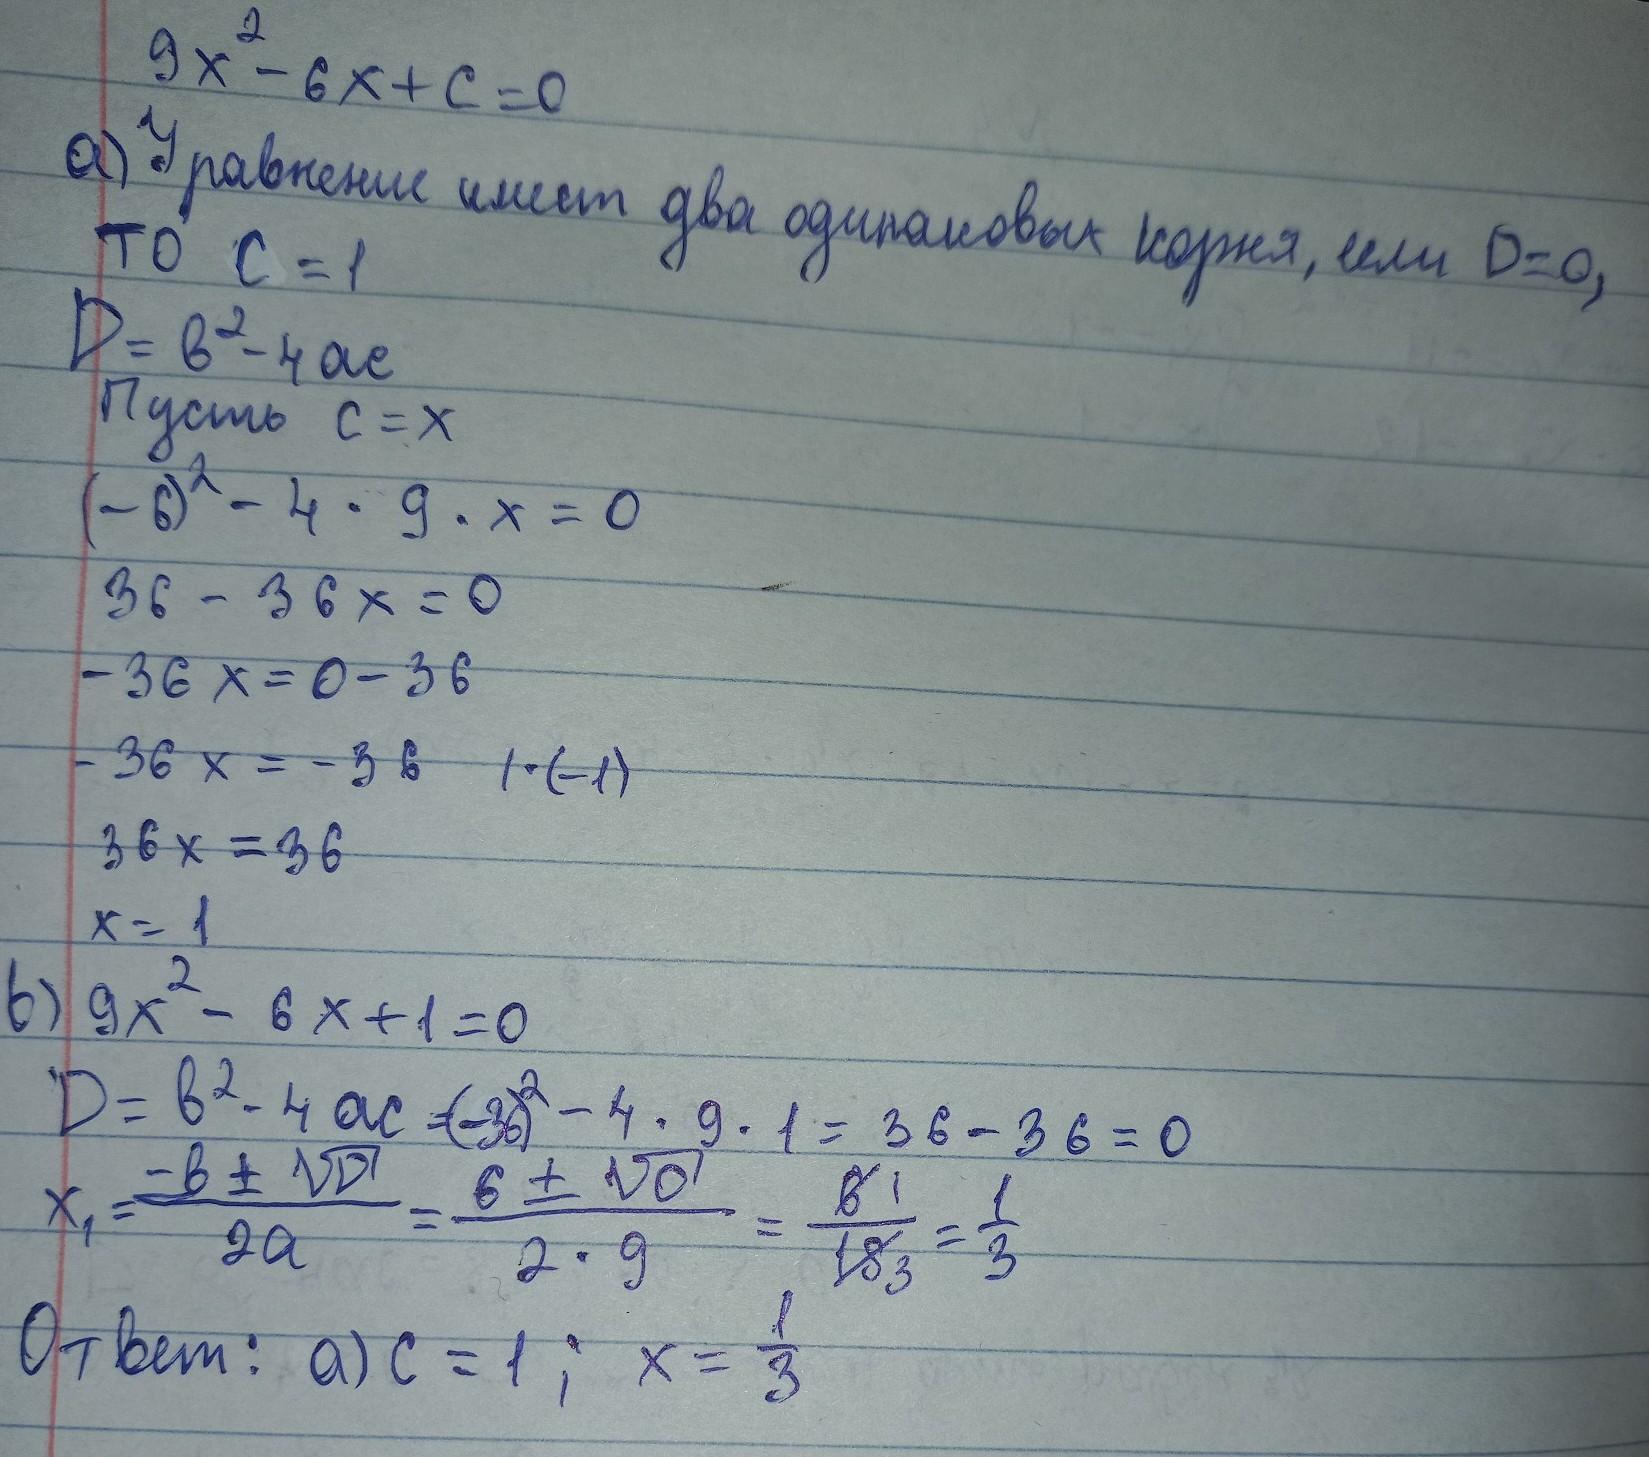 9x² - 6x + c = 0
а) Уравнение имеет два одинаковых корня, если D=0,
ТО C = 1
D = b² - 4ac
Пусть c = x
(-6)² - 4 · 9 · x = 0
36 - 36x = 0
-36x = 0 - 36
-36x = -36 | · (-1)
36x = 36
x = 1
b) 9x² - 6x + 1 = 0
D = b² - 4ac = (-36)² - 4 · 9 · 1 = 36 - 36 = 0
x₁ = (-b ± √D)/(2a) = (6 ± √0)/(2 · 9) = 6 1/18 3 = 1/3
Ответ: а) c = 1 ; x = 1/3